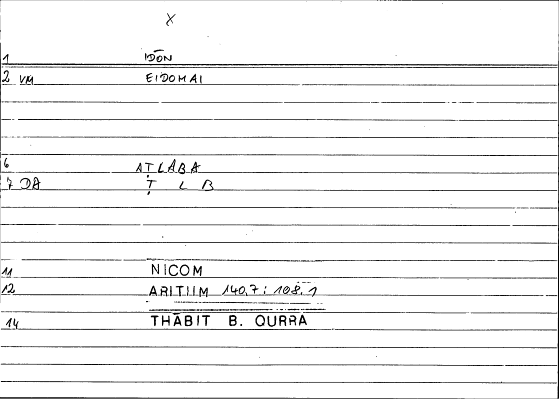 X
1 IDŌN
2 VM EIDOMAI
6 AṬLABA
7 DA Ṭ L B
11 NICOM
12 ARITIIM 140,7; 108.1
14 THĀBIT B. QURRA